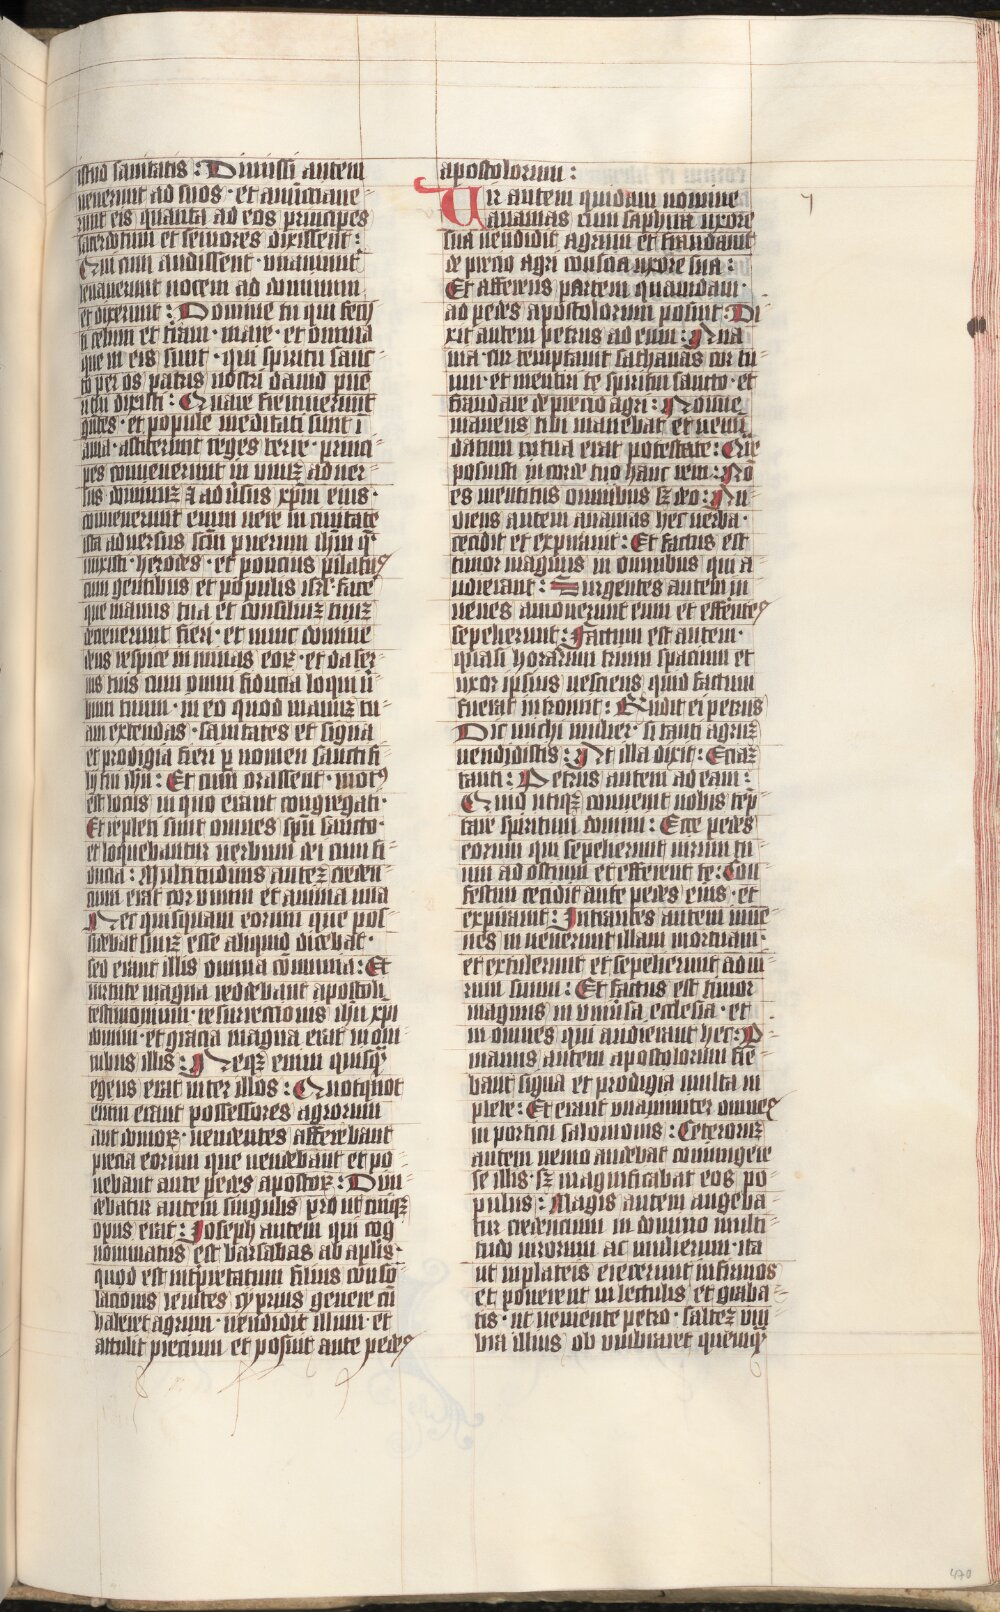 istud sanitatis : Dimissi autem
venerunt ad suos · et anūctiaue-
runt eis quanta ad eos principes
sacerdotum et seniores dixissent :
Qui cum audissent · vnanimit̄
levaverunt vocem ad dominum
et dixerunt : Domine tu qui feci
ti celum et t̄ram · mare · et omnia
que in eis sunt · qui spiritu sanc-
to per os patris nostri dauid pue
ri tui dixisti : Quare fremuerunt
gētes · et populi meditati sunt i
ania · astiterunt reges terre · princi
pes convenerunt in vnuꝫ adver-
sus dominuꝫ ⁊ adūsus xp̄m eius ·
convenerunt enim vere in civitate
ista adversus sc̄m puerum ih̄m q̄
unxisti · herodes · et poncius pilatꝰ
cum gentibus et populis isrl̄ · face
que manus tua et consiliuꝫ tuuꝫ
decreverunt fieri · et nunc domine
deus respice in minas eoꝝ · et da ser-
uis tuis cum omni fiducia loqui ū
bum tuum · in eo quod manuꝫ tu-
am extendas · sanitates et signa
et prodigia fieri ꝑ nomen sancti fi-
lij tui ih̄u : Et cum orassent · motꝰ
est locus in quo erant congregati ·
Et repleti sunt omnes sp̄u sancto ·
et loquebantur uerbum dei cum fi-
ducia : Multitudinis auteꝫ creden-
cium erat cor vnum et anima vna
Nec quisquam eorum que pos-
sidebat suuꝫ esse aliquid dicebat ·
sed erant illis omnia cōmunia : Et
virtute magna reddebant apostoli
testimonium · resurrectionis ih̄u xp̄i
domini · et gracia magna erat in om-
nibus illis : Neqꝫ enim quisq̄
egens erat inter illos : Quotquot
enim erant possessores agrorum
aut domoꝝ · vendentes afferebant
precia eorum que vendebant et po-
nebant ante pedes apostoꝝ : Divi-
debatur autem singulis prout cuiqꝫ
opus erat : Joseph autem qui cog
nominatus est barsabas ab apl̄is ·
quod est int̄pretatum filius conso-
lacionis levites cyprius genere cū
haberet agrum · vendidit illum · et
attulit precium et posuit ante pedes
apostolorum :
Vir autem quidam nomine
ananias cum saphira uxore
sua vendidit agrum et fraudauit
de precio agri conscia uxore sua :
Et afferens partem quandam ·
ad pedes apostolorum posuit : Di-
xit autem petrus ad eum : Ana
nia · cur temptauit sathanas cor tu-
um · et mentiri te spiritui sancto · et
fraudare de precio agri : Nonne
manens tibi manebat et venū
datum in tua erat potestate : Qre
posuisti in corde tuo hanc rem : Nō
es mentitus ominibus sꝫ deo : Au-
diens autem ananias hec verba ·
cecidit et expirauit : Et factus est
timor magnus in omnibus qui a
udierant : Surgentes autem iu
uenes amoverunt eum et efferētes
sepelierunt : Factum est autem ·
quasi horarum trium spacium et
uxor ipsius nesciens quid factum
fuerat introiuit : Rn̄dit ei petrus
Dic michi mulier · si tanti agruꝫ
vendidistis : At illa dixit : Eciaꝫ
tanti : Petrus autem ad eam :
Quid utiqꝫ convenit vobis tēp-
tare spiritum domini : Ecce pedes
eorum qui sepelierunt virum tu-
um ad ostium et efferent te : Con
festim cecidit ante pedes eius · et
expirauit : Intrantes autem iuue-
nes invenerunt illam mortuam ·
et extulerunt et sepelierunt ad vi-
rum suum : Et factus est timor
magnus in vniūsa ecclesia · et
in omnes qui audierant hec : Per
manus autem apostolorum fie-
bant signa et prodigia multa in
plebe : Et erant vnanimiter omnes
in porticu salomonis : Ceteroruꝫ
autem nemo audebat coniungere
se illis · sꝫ magnificabat eos po-
pulus : Magis autem augeba-
tur credencium in domino multi-
tudo virorum ac mulierum · ita
ut in plateis eiecerunt infirmos
et ponerent in lectulis et graba-
tis · ut veniente petro · salteꝫ vm̄
bra illius ob vmbraret quemq̄
470